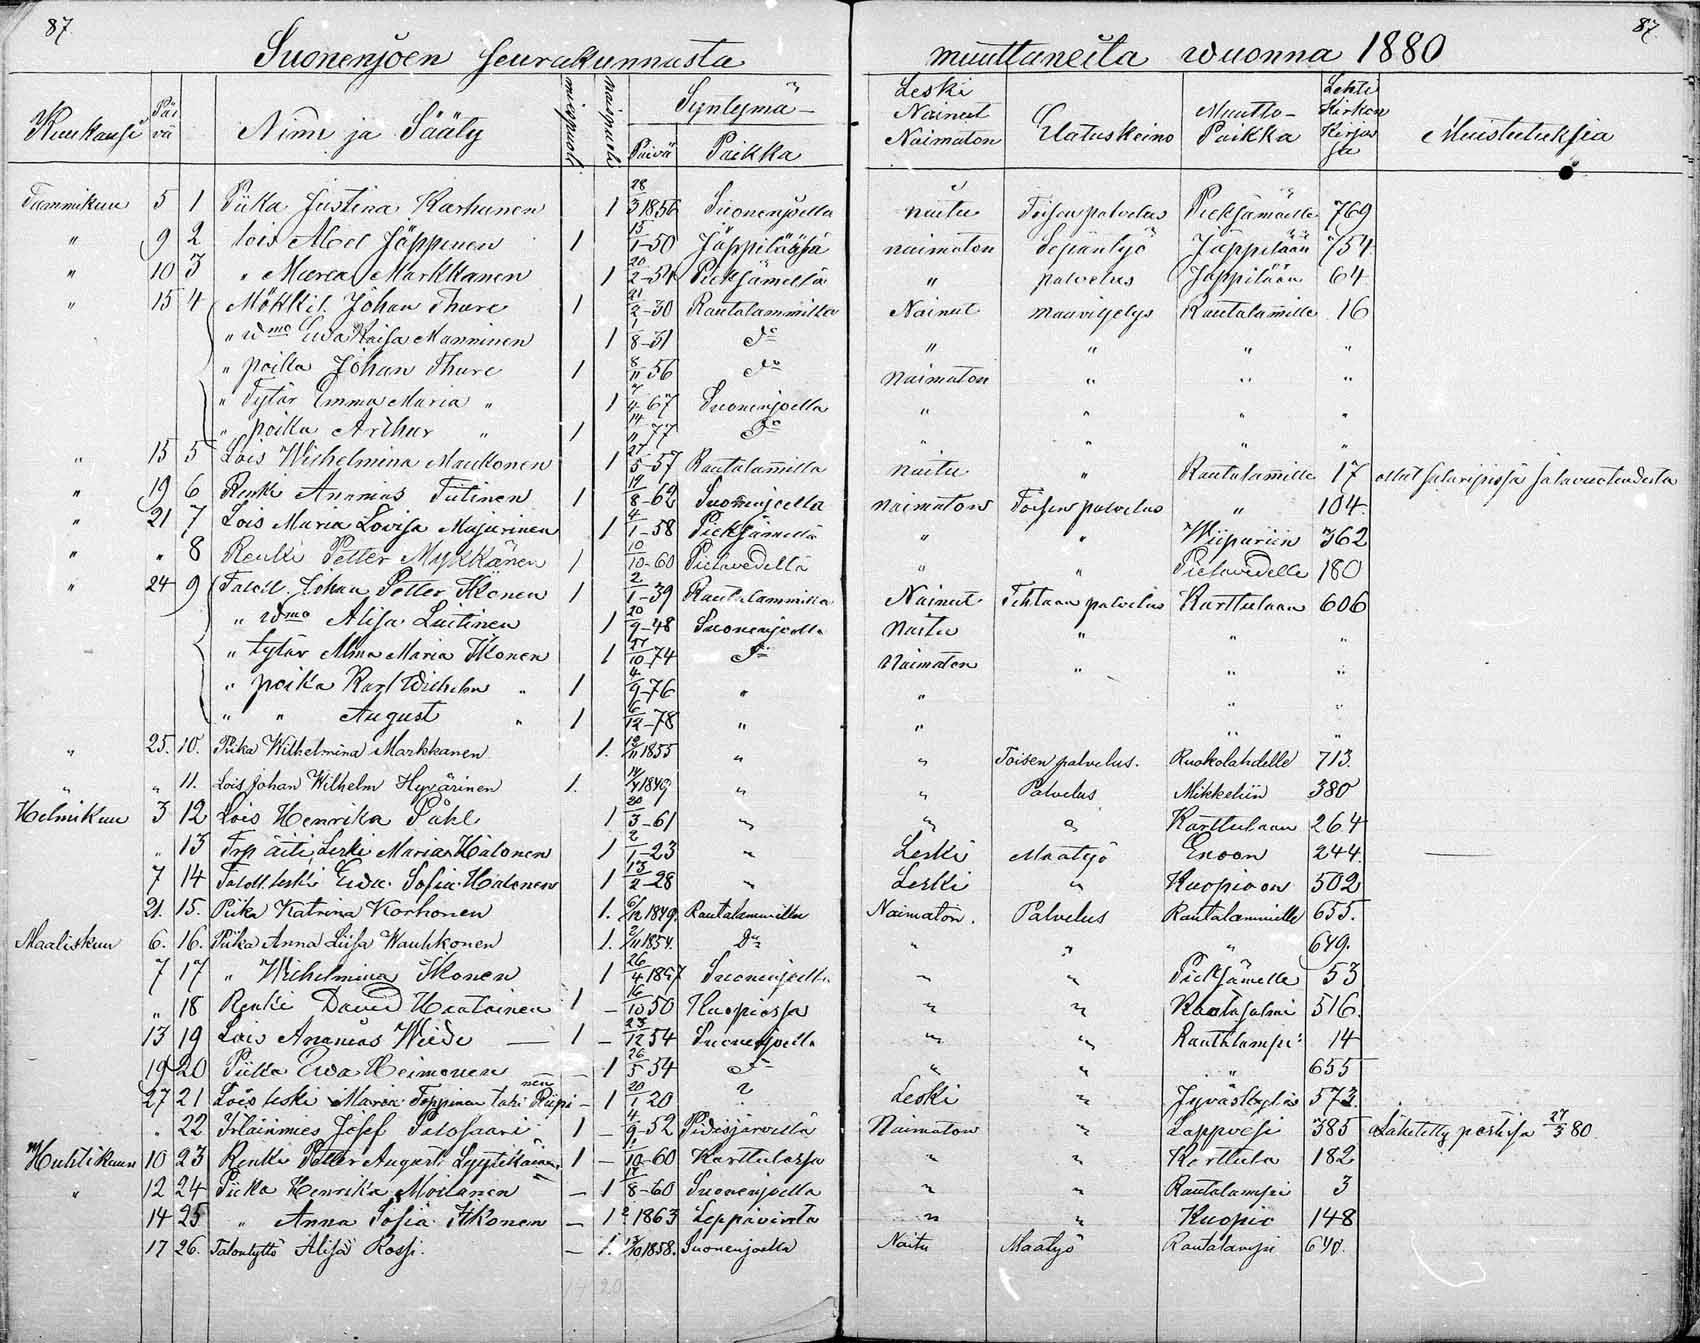 87.
87
Suonenjoen seurakunnasta muuttaneita wuonna 1880
Kuukausi Päivä Nimi ja Sääty miespuoli naispuoli Syntymä- Päivä Paikka Leski Nainut Naimaton Elatuskeino Muutto-Paikka Lehti Kirkon Kirjassa Muistutuksia
Tammikuu 5 1 Piika Justina Karhunen 1 28/3 1856 Suonenjoella naitu Toisen palvelus Pieksämäelle 769
" 9 2 Lois Abel Jäppinen 1 15/1-50 Jäppilässä naimaton Sepäntyö Jäppilään 754
" 10 3 " Maria Markkanen 1 20/2-54 Pieksämellä " palvelus Jäppilään 64
" 15 4 Mökkil. Johan Thure 1 21/2-30 Rautalammilla Nainut maaviljelys Rautalammille 16
" vmo Ewa Kaisa Manninen 1 1/8-31 Do " " " "
" poika Johan Thure 1 8/11 56 Do naimaton " " "
" Tytär Emma Maria " 1 7/4-67 Suonenjoella " " " "
" poika Arthur " 1 14/11 77 Do " " " "
" 15 5 Lois Wilhelmina Maukonen 1 27/5-57 Rautalammilla naitu " Rautalammille 17
" 19 6 Renki Ananias Tiitinen 1 19/8-62 Suonenjoella naimaton Toisen palvelus " 104
" 21 7 Lois Maria Lovisa Majurinen 1 4/1-58 Pieksämellä " " Wiipuriin 362
" " 8 Renki Petter Mykkänen 1 10/10-60 Pielavedellä " " Pielavedelle 180
" 24 9 Taloll. Johan Petter Ikonen 1 2/1-39 Rautalammilla Nainut Tehtaan palvelus Karttulaan 606
" vmo Alisa Luitinen 1 20/9-48 Suonenjoella Naitu " " "
" tytär Alma Maria Ikonen 1 27/10 74 Do Naimaton " " "
" poika Karl Wilhelm " 1 4/9-76 " " " "
" " August " 1 6/12-78 " " " "
" 25. 10. Piika Wilhelmina Markkanen 1. 12/11 1855 " " Toisen palvelus. Ruokolahdelle 713.
" " 11. Lois Johan Wilhelm Hyvärinen 1. 14/4 1849 " " Palvelus Mikkeliin 380
Helmikuu 3 12 Lois Henrika Påhl 1 20/3-61 " " " Karttulaan 264
" 13 Trp äiti Leski Maria Halonen 1 2/1-23 " Leski Maatyö Enoon 244.
7 14 Taloll. leski Ewa Sofia Halonen 1 13/2-28 " Leski " Kuopioon 502
21. 15. Piika Katrina Korhonen 1. 6/12 1849. Rautalammilla Naimaton. Palvelus Rautalammille 655.
Maaliskuu 6. 16. Piika Anna Liisa Wauhkonen 1. 2/11 1854. Do " " " 649.
7 17 " Wilhelmina Ikonen 1 26/4 1857 Suonenjoella " " Pieksämelle 53
" 18 Renki David Haatainen 1 - 16/10 50 Kuopiossa " " Rantasalmi 516.
13 19 Lois Ananias Wiide 1 - 23/12 54 Suonenjoella " " Rautalampi 14
19 20 Piika Ewa Heimonen - 1 26/5 54 Do " " " 655
27 21 Lois leski Maria Toppinen tahi Riipinen - 1 20/1 20 ? Leski " Jyväskylä 573.
" 22 Irtainmies Josef Palosaari 1 - 4/9-52 Pidisjärvellä Naimaton " Lappvesi 385 Lähetetty postissa 27/3 80.
Huhtikuun 10 23 Renki Petter August Lyytikäinen 1 - 1/10-60 Karttulassa " " Karttula 182
" 12 24 Piika Henrika Moilanen - 1 17/8-60 Suonenjoella " " Rautalampi 3
14 25 " Anna Sofia Ikonen - 1 ? 1863 Leppävirta " " Kuopio 148
17 26. Talontyttö Alisa Rossi. - 1. 1858. Suonenjoella Naitu Maatyö Rautalampi 640.